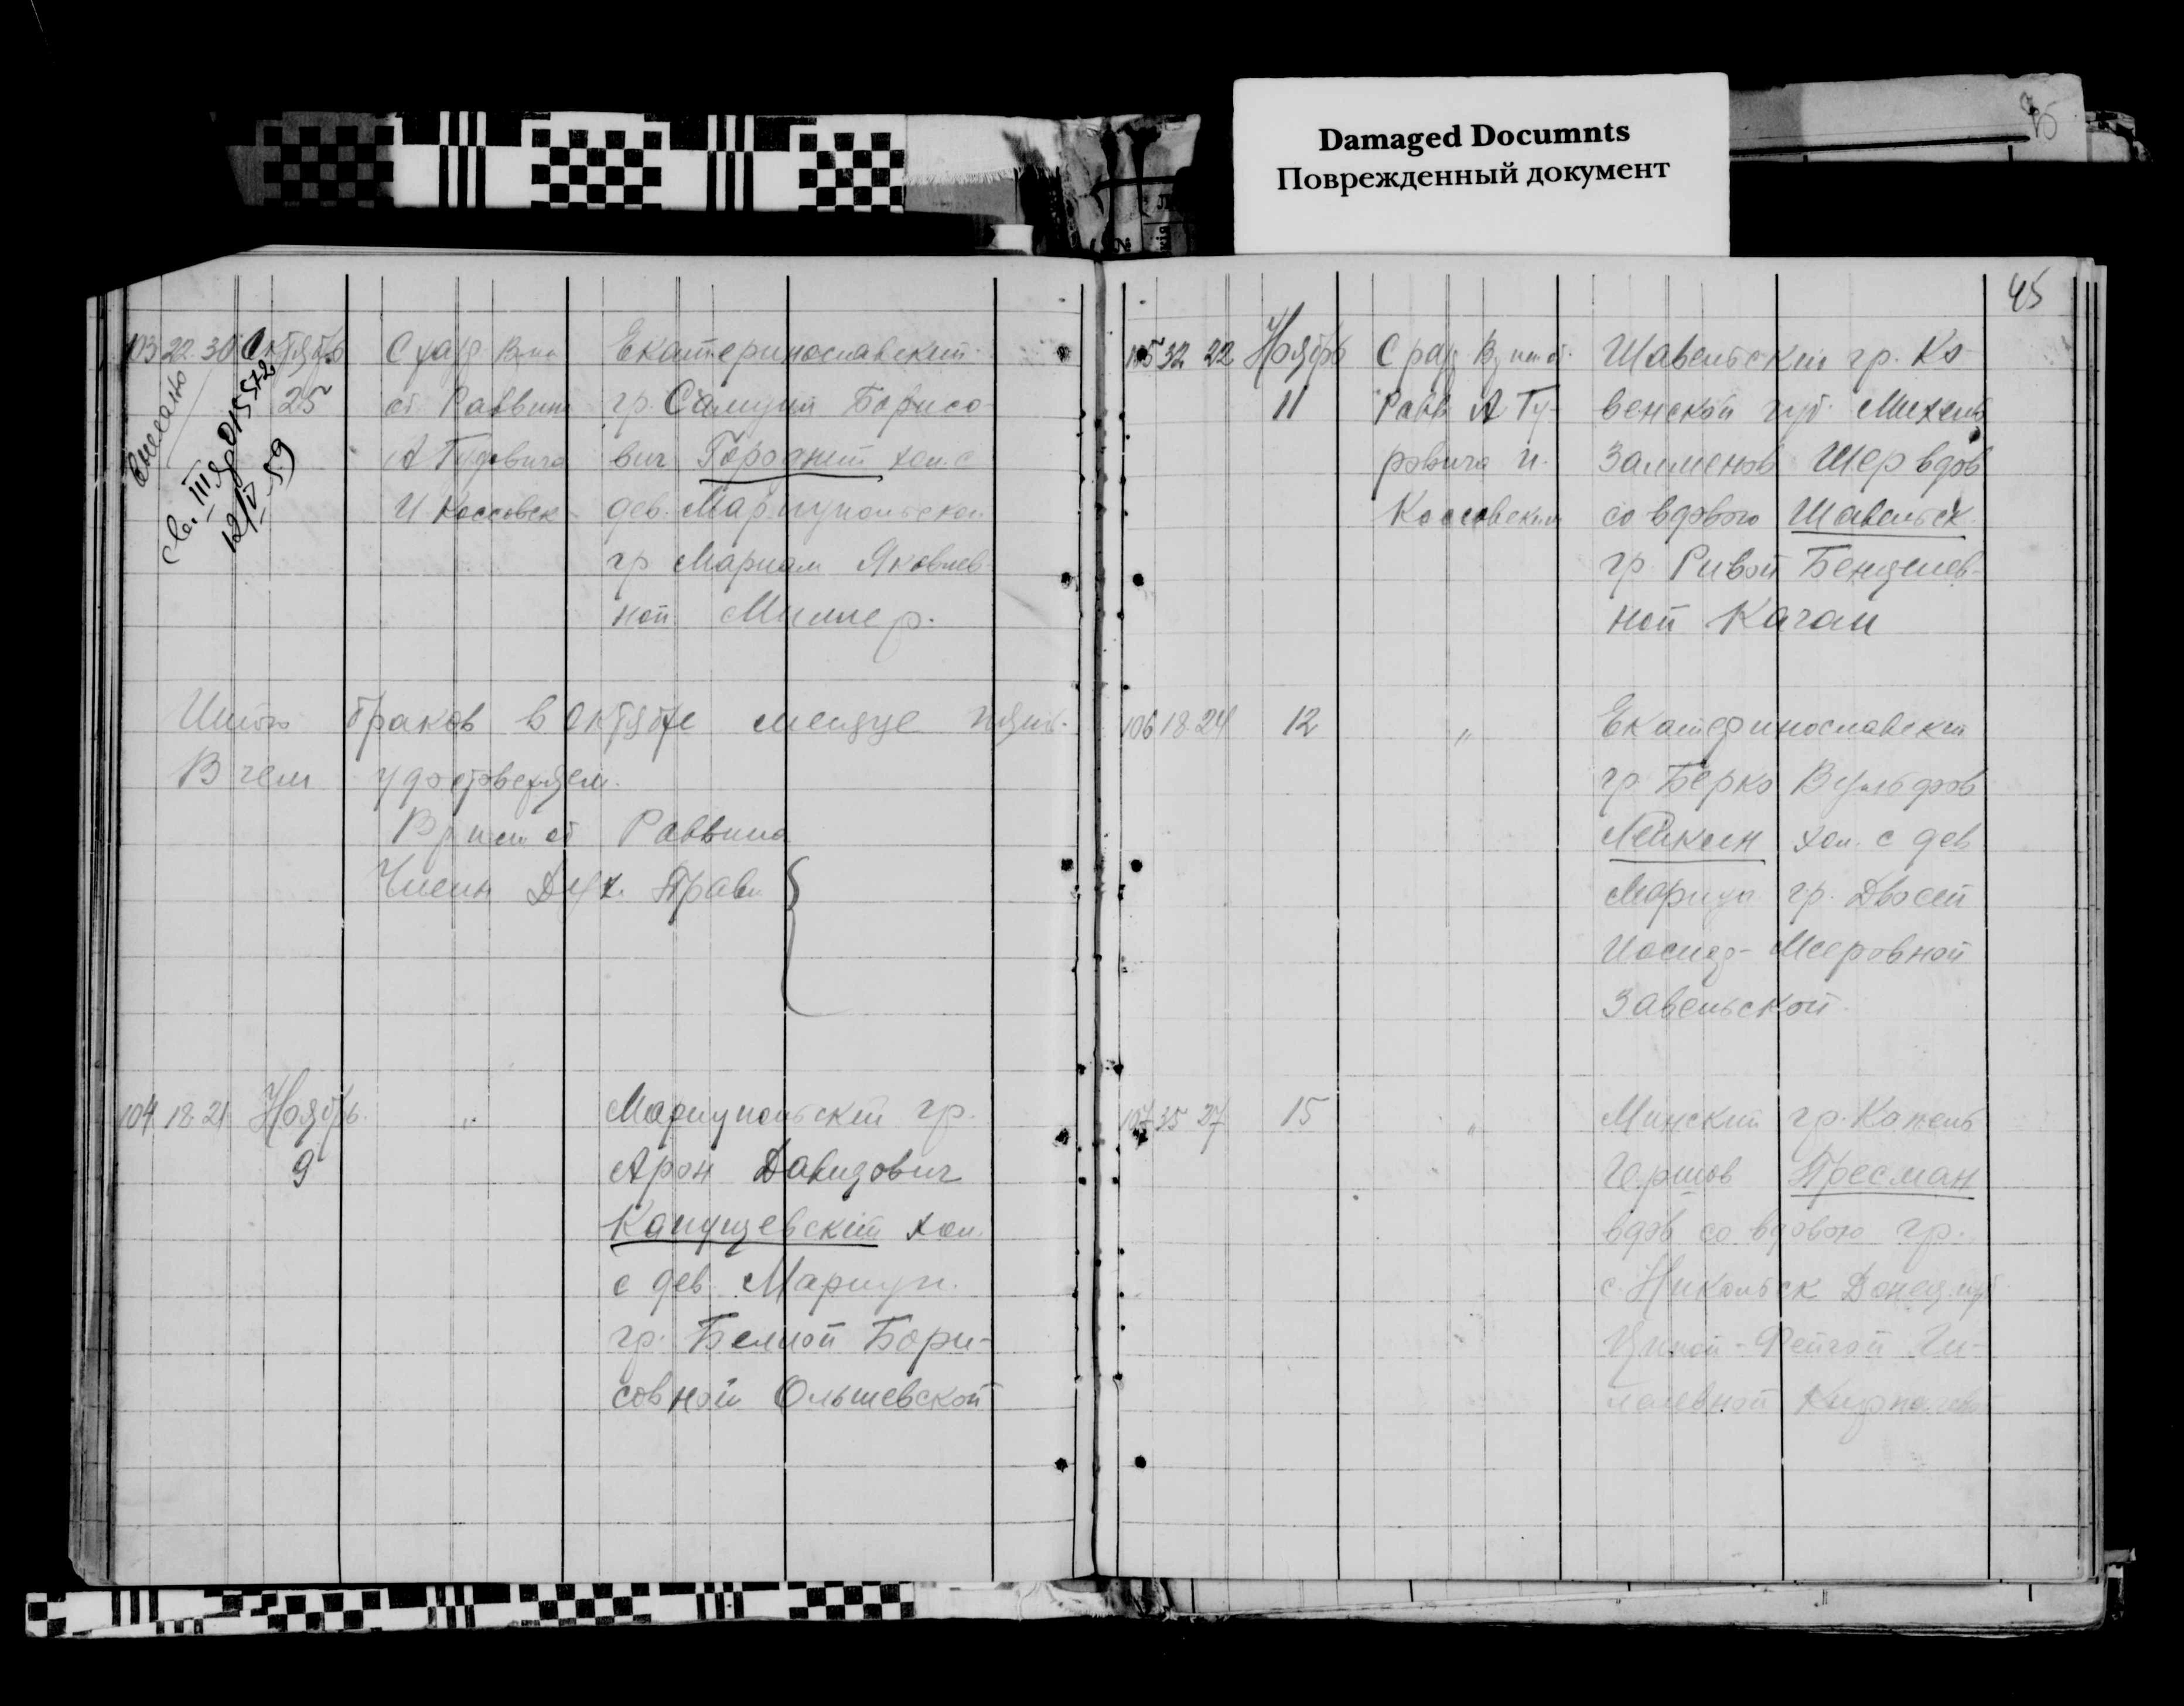 Damaged Documnts
Поврежденный документ
45
103 22 30 Октябрь
25
внесано
св. III
12/IV-59
С разр
от Раввина
А Гуровича
И. Коссовск
Екатеринославский
гр. Самуил Борисо-
вич Городний хол. с
дев. Мариупольской
гр Мариам Яковлев-
ной Миллер.
Итого браков в Октябре месяце
В чем удостоверяем.
Раввина
Член Дух. Правл
104 18 21 Ноябрь
9
"
Мариупольский гр.
Арон Давидович
хол.
с дев. Мариуп.
гр. Бори-
совной Ольшевской
105 32 22 Ноябрь
11
С раз.
Равв А Гу-
ровича и.
Коссовский
Шавельский гр. Ко-
венской губ. Михель
Залменов Шер вдов
со вдовою Шавельск.
гр. Ривой Бенцелев-
ной Каган
106 18 24
12
"
Екатеринославский
гр. Берко Вульфов
Лейкин хол. с дев
Мариуп гр. Двосей
Иосифо-Мееровной
Завельской.
107 35 27
15
"
Минский гр. Копель
Гершов Пресман
вдов со вдовою гр.
с. Никольск Донец. губ
Ципой-Фейгой